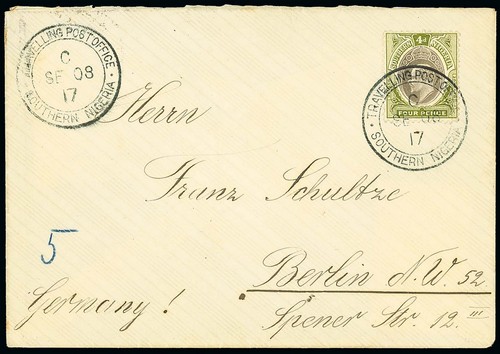 TRAVELLING POST OFFICE
C
SE 08
17
SOUTHERN NIGERIA
4d
FOUR PENCE
TRAVELLING POST OF
C
SE 08
17
SOUTHERN NIGERIA
Herrn
Franz Schultze
5
Berlin N.W. 52
Germany!
Spener Str. 12 III